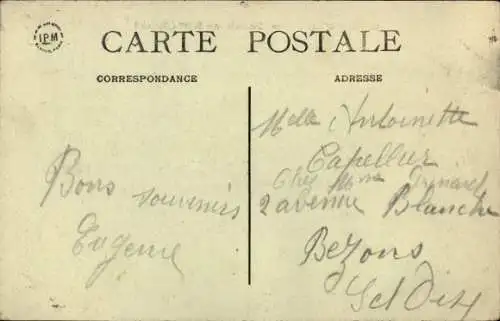 IPM
CARTE POSTALE
CORRESPONDANCE
ADRESSE
Bons souvenirs
Eugenie
Melle Antoinette
Capellur
Chez Mme
2 avenue Blanche
Bezons